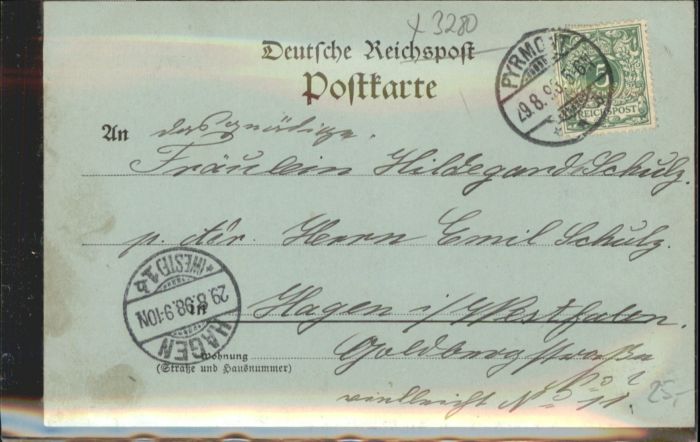 x 3280
Deutsche Reichspost
Postkarte
PYRMONT
29.8.98
5
REICHSPOST
An das gnädige
Fräulein Hildegard Schulz.
p. Adr. Herrn Emil Schulz.
HAGEN
(WESTF) 1 b
29.8.98.9-10N
in Hagen i/Westfalen.
Wohnung Goldbergstraße
(Straße und Hausnummer)
vielleicht No 11.
25-